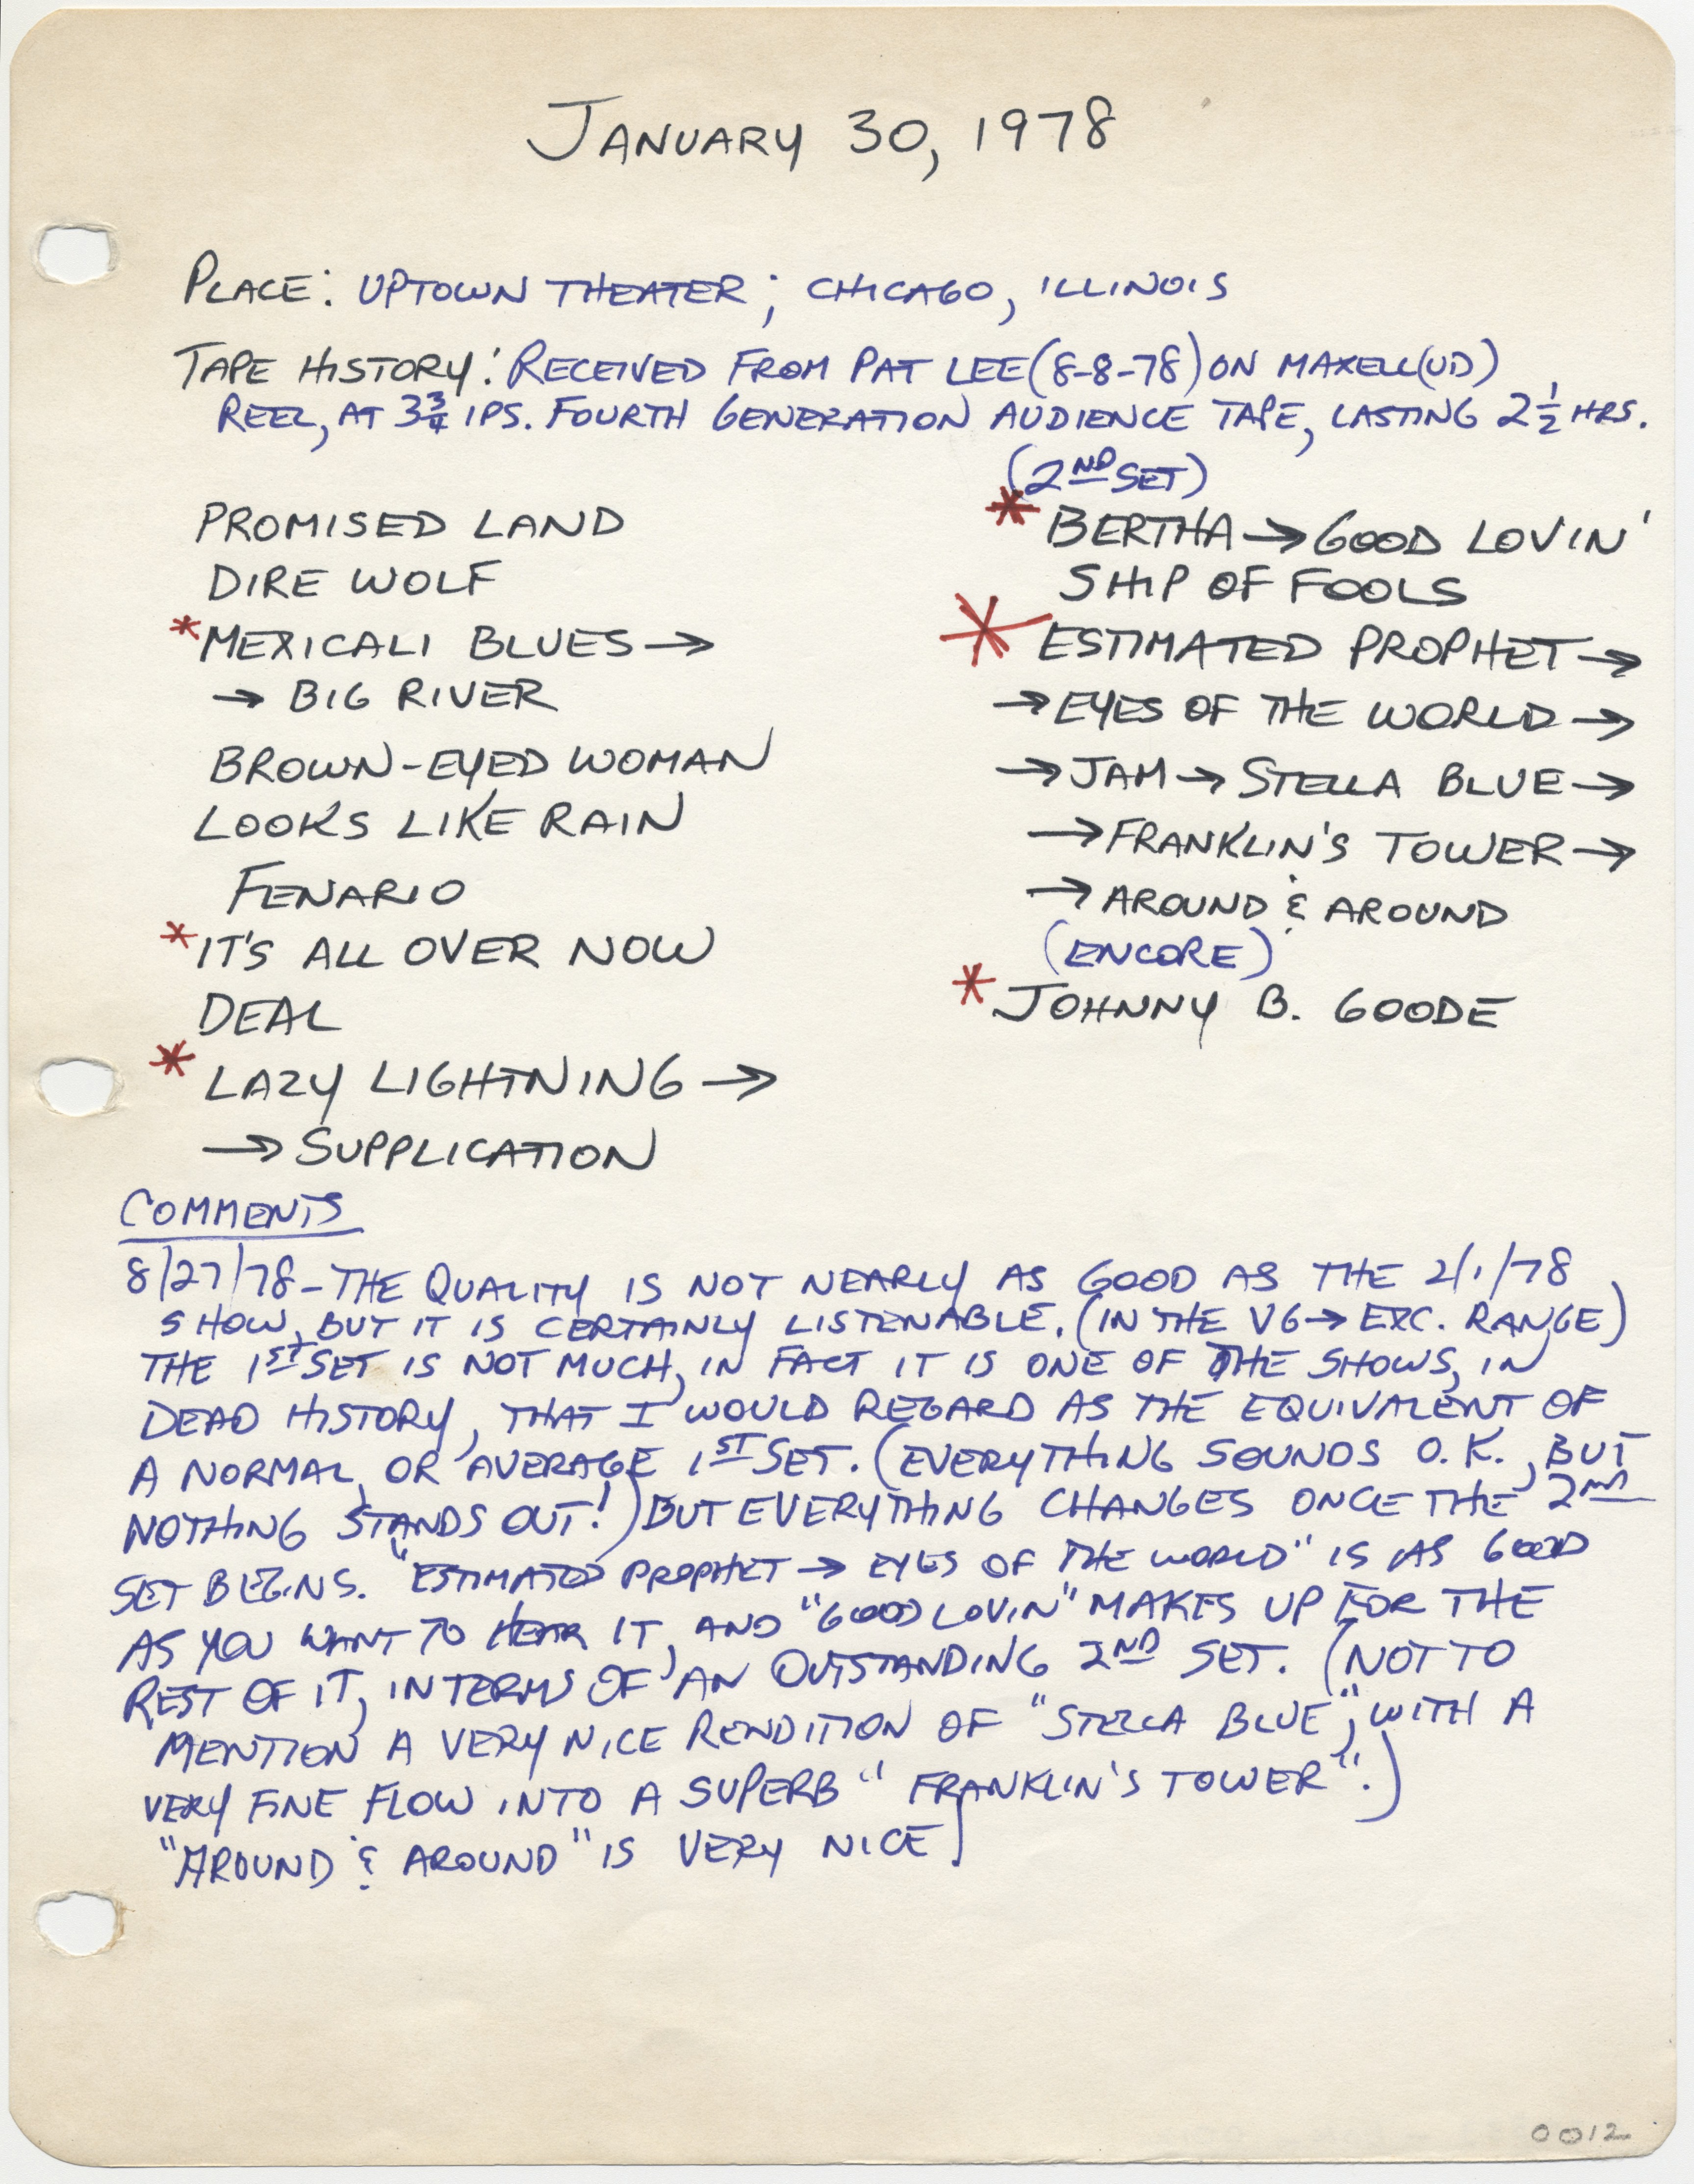 JANUARY 30, 1978
PLACE: UPTOWN THEATER; CHICAGO, ILLINOIS
TAPE HISTORY: RECEIVED FROM PAT LEE (8-8-78) ON MAXELL (UD)
REEL, AT 3 3/4 IPS. FOURTH GENERATION AUDIENCE TAPE, LASTING 2 1/2 HRS.
PROMISED LAND
DIRE WOLF
*MEXICALI BLUES →
→ BIG RIVER
BROWN-EYED WOMAN
LOOKS LIKE RAIN
FENARIO
*IT'S ALL OVER NOW
DEAL
*LAZY LIGHTNING →
→ SUPPLICATION
(2ND SET)
*BERTHA → GOOD LOVIN'
SHIP OF FOOLS
*ESTIMATED PROPHET →
→ EYES OF THE WORLD →
→ JAM → STELLA BLUE →
→ FRANKLIN'S TOWER →
→ AROUND & AROUND
(ENCORE)
*JOHNNY B. GOODE
COMMENTS
8/27/78 - THE QUALITY IS NOT NEARLY AS GOOD AS THE 2/1/78
SHOW, BUT IT IS CERTAINLY LISTENABLE. (IN THE VG → EXC. RANGE)
THE 1ST SET IS NOT MUCH, IN FACT IT IS ONE OF THE SHOWS, IN
DEAD HISTORY, THAT I WOULD REGARD AS THE EQUIVALENT OF
A NORMAL, OR AVERAGE 1ST SET. (EVERYTHING SOUNDS O.K., BUT
NOTHING STANDS OUT!) BUT EVERYTHING CHANGES ONCE THE 2ND
SET BEGINS. "ESTIMATED PROPHET → EYES OF THE WORLD" IS AS GOOD
AS YOU WANT TO HEAR IT, AND "GOOD LOVIN" MAKES UP FOR THE
REST OF IT, IN TERMS OF AN OUTSTANDING 2ND SET. (NOT TO
MENTION A VERY NICE RENDITION OF "STELLA BLUE", WITH A
VERY FINE FLOW INTO A SUPERB "FRANKLIN'S TOWER".)
"AROUND & AROUND" IS VERY NICE]
0012